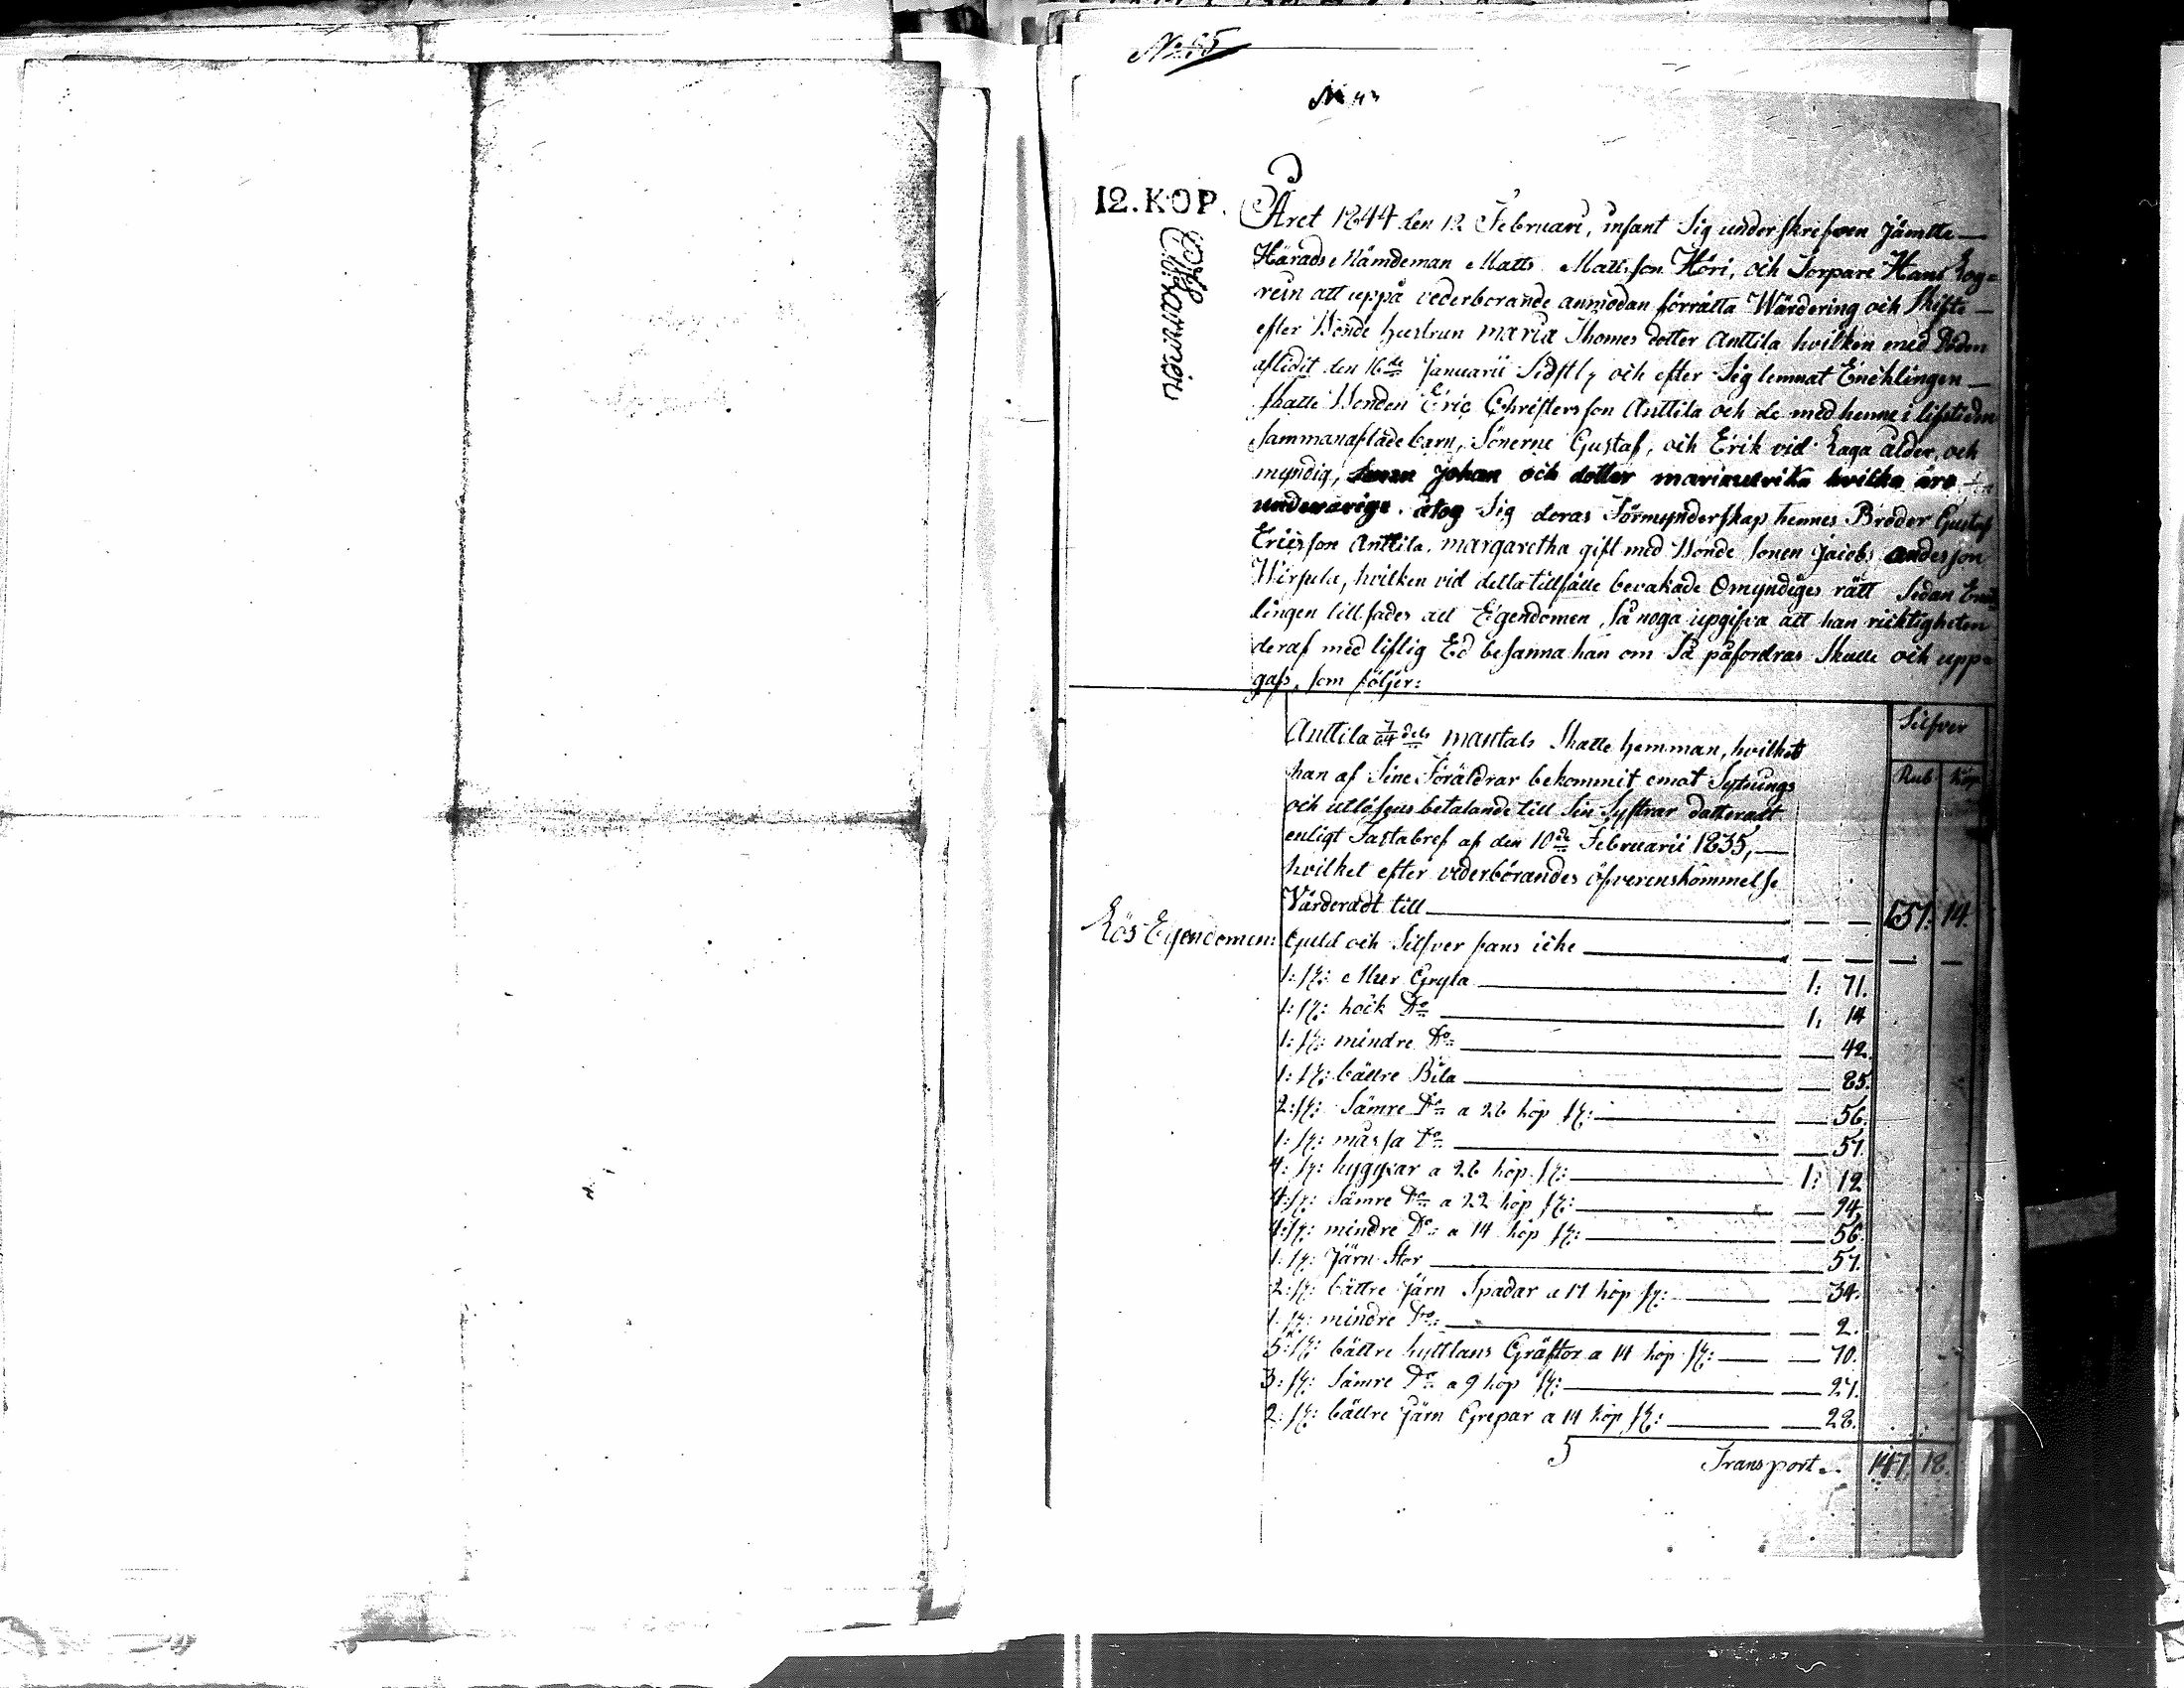 No 85
12. KOP.
Året 1844 den 12 Februari, infant Sig underskrifven Jämte
Härads Nämdeman Matts Mattsson Höri, och Torpare Hans Rog=
rein att uppå vederborande anmodan förrätta Wärdering och Skifte
efter Bonde hustrun Maria Thomes dotter Anttila hvilken med Döden
aflidit den 16de Januarii Sidstl: och efter Sig lemnat Encklingen
Skatte Bonden Eric Christersson Anttila och de med henne i lifstiden
Sammanaflade barn, Sönerne Gustaf, och Erik vid Laga ålder, och
myndig, Sonen Johan och dotter mariaulrika hvilka äro
underårige. åtog Sig deras Förmynderskap hennes Broder Gustaf
Ericsson Anttila. margaretha gift med Bonde Sonen Jacob andersson
Wirsula, hvilken vid detta tillfälle bevakade Omyndiges rätt Sedan Enck
lingen tillsades all Egendomen, Så noga upgifva att han ricktigheten
deraf med liflig Ed besanna kan om Så påfordras Skulle och upp=
gafs, som följer:
Silfver
Rub Kop
Anttila 7/64 dels mantals Skatte hemman, hvilket
han af Sine Föräldrar bekommit emot Sytnings
och utlösens betalande till Sin Systrar datteradt
enligt Fastabref af den 10de Februarii 1835,
hvilket efter vederbörandes öfverenskommelse
Värderadt till 157. 14.
Lös Egendomen: Guld och Silfver fans icke
1: st: Mur Gryta 1: 71.
1: st: kock Do 1: 14
1: st: mindre Do 42.
1: st: bättre Bila 85.
2: st: Sämre Do a 28 kop st: 56.
1: st: mässa Do 57.
4: st: hyggyxar a 28 kop st: 1: 12
4: st: Sämre Do a 22 kop st: 94.
4: st: mindre Do a 14 kop st: 56.
1: st: Järn Stor 57.
2: st: bättre Järn Spadar a 17 kop st: 34.
1. st: mindre Do 2.
5: st: bättre hyttlans Gräftor a 14 kop st: 70.
3: st: Sämre Do a 9 kop st: 27.
2: st: bättre Järn Grepar a 14 kop st: 28.
Transport 147. 18.